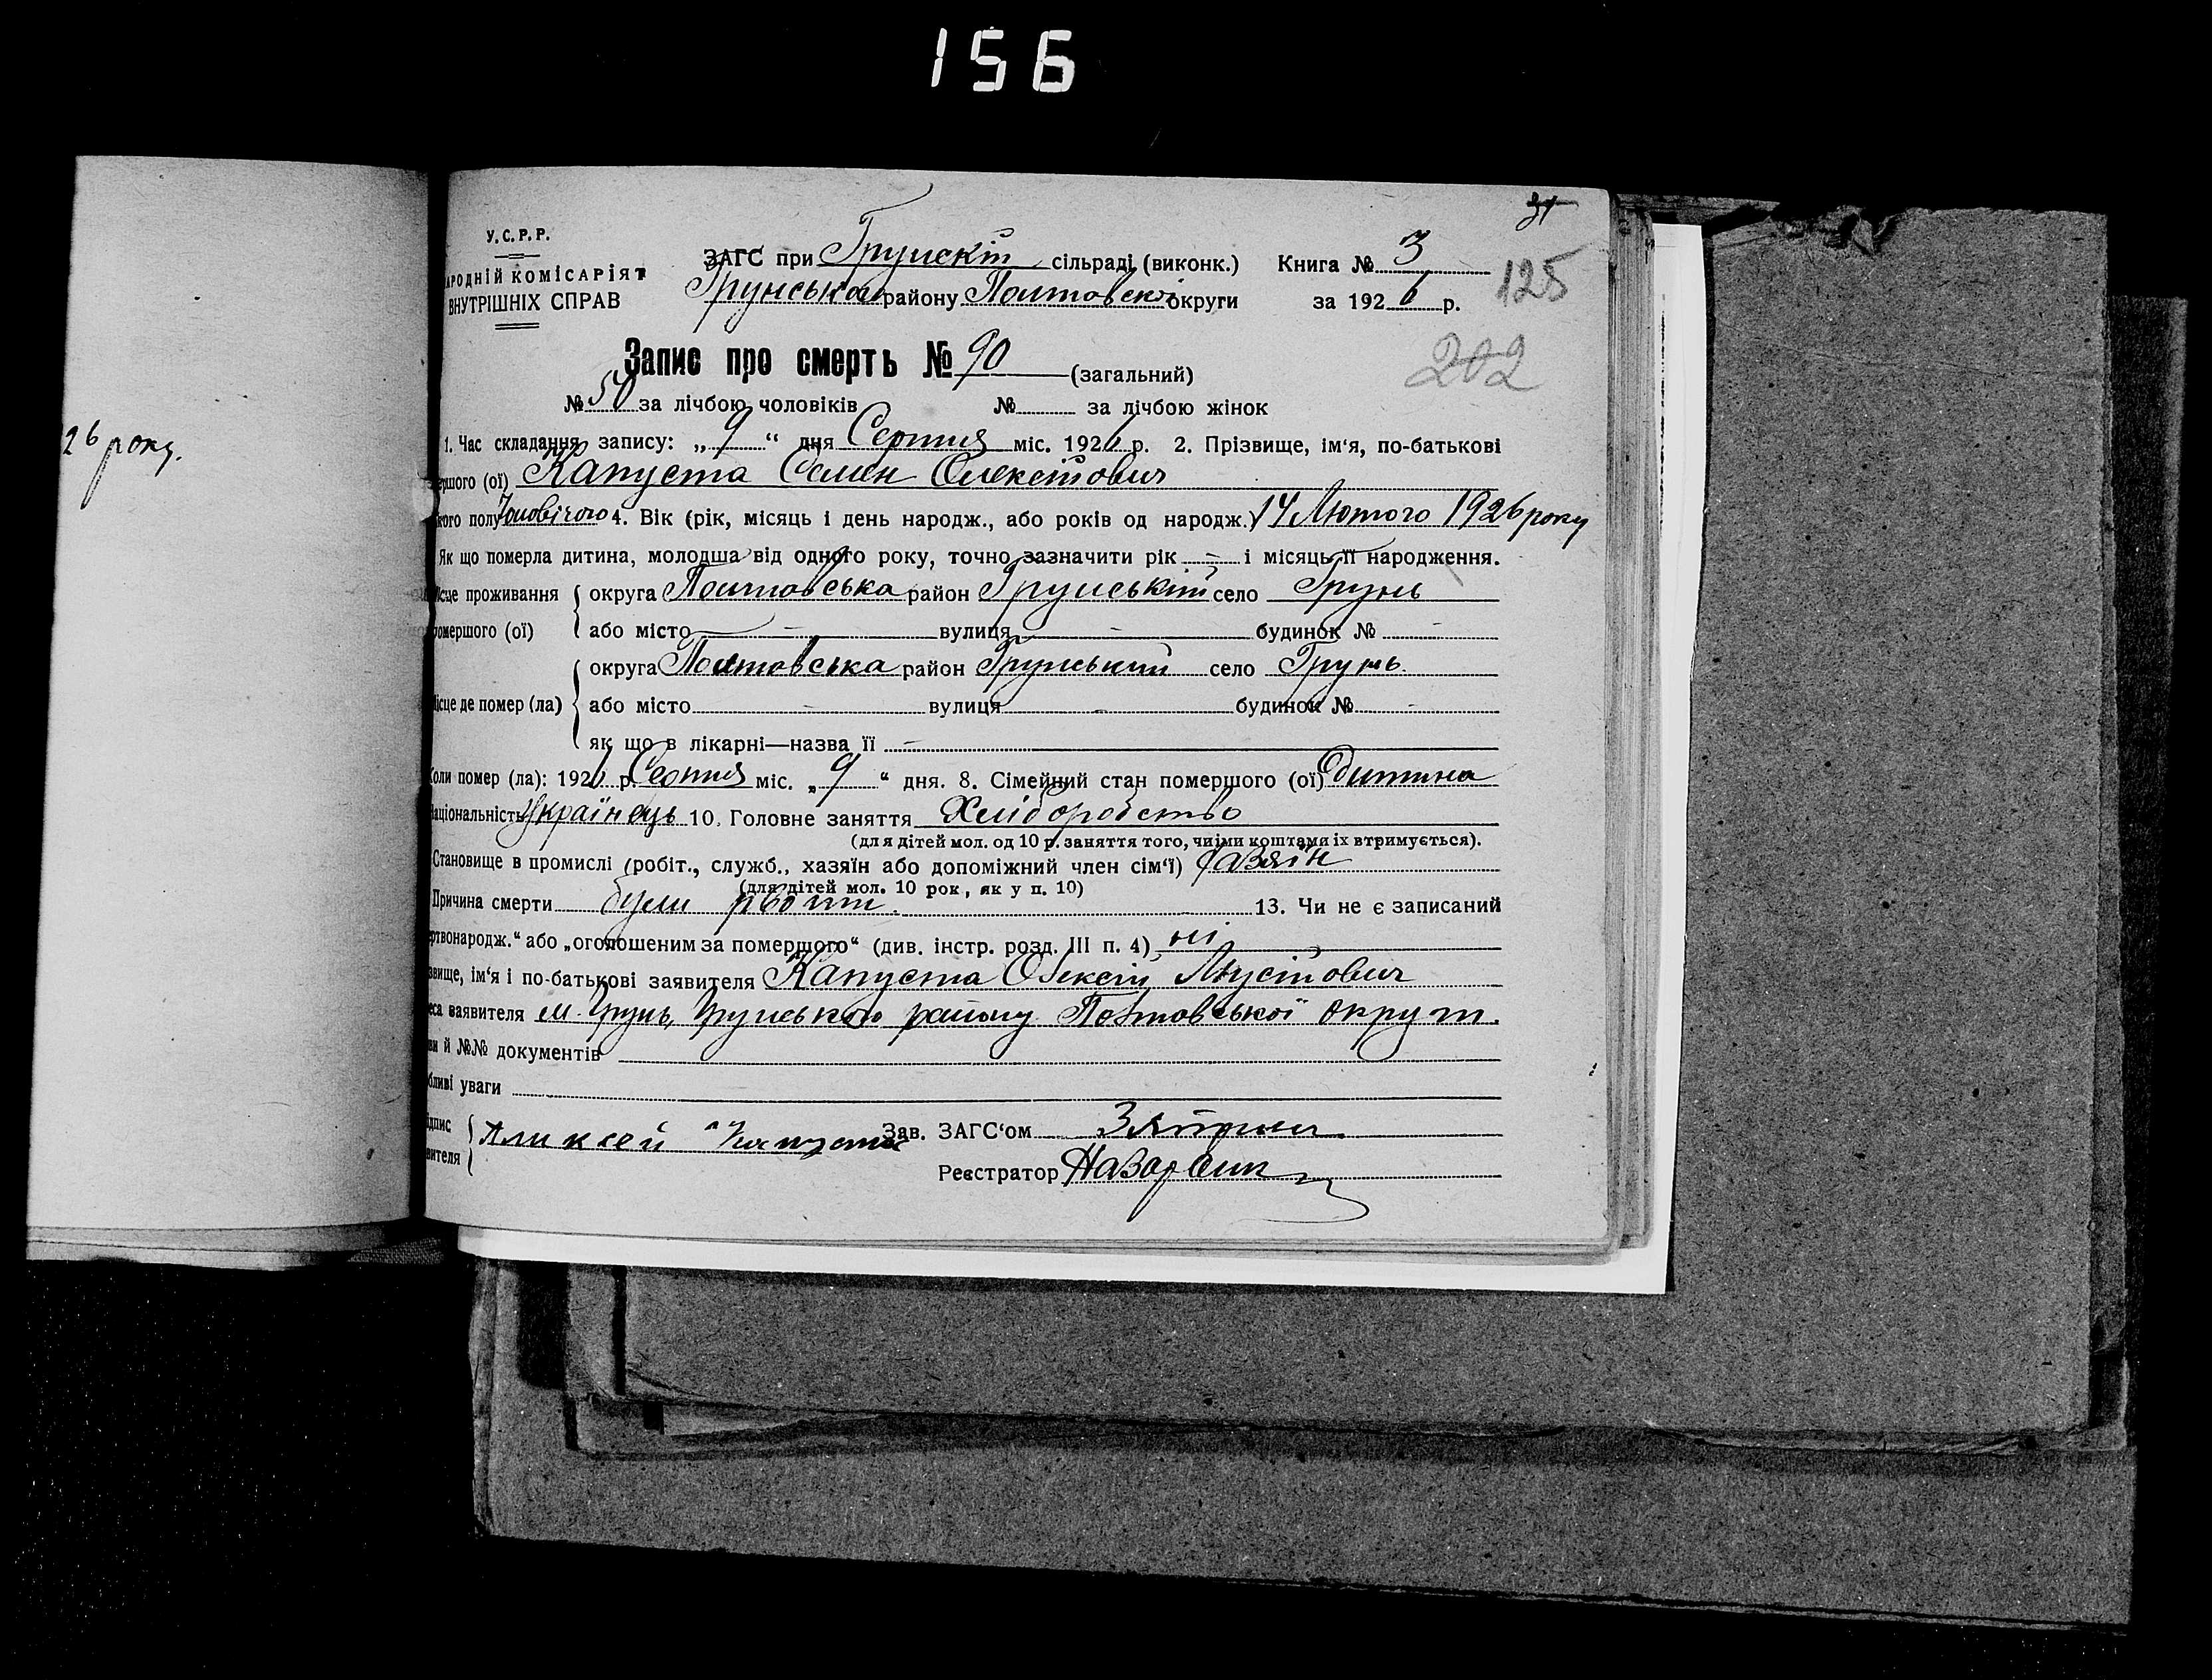 156
31
У.С.Р.Р.
АРОДНІЙ КОМІСАРІЯТ
ВНУТРІШНІХ СПРАВ
ЗАГС при Грунскій сільраді (виконк.) Книга № 3
Грунського району Полтовскої округи за 1926 р. 125
Запис про смерть № 90 (загальний) 202
№ 50 за лічбою чоловіків № за лічбою жінок
26 року.
1. Час складання запису: „ 9 “ дня Серпня міс. 1926 р. 2. Прізвище, ім‘я, по-батькові
ершого (ої) Капуста Семен Олексійович
кого полу Чоловічого 4. Вік (рік, місяць і день народж., або років од народж.) 14 Лютого 1926 року
Як що померла дитина, молодша від одного року, точно зазначити рік - і місяць її народження.
ісце проживання округа Полтовська район Грунський село Грунь
омершого (ої) або місто - вулиця - будинок № -
округа Полтовська район Грунський село Грунь.
ісце де помер (ла) або місто - вулиця - будинок № -
як що в лікарні—назва її -
Коли помер (ла): 1926 р. Серпня міс. „ 9 “ дня. 8. Сімейний стан помершого (ої) Дитина
аціональність Українець 10. Головне заняття Хліборобство
(для дітей мол. од 10 р. заняття того, чиїми коштами їх втримується).
Становище в промислі (робіт., служб., хазяїн або допоміжний член сім‘ї) хазяїн
(для дітей мол. 10 рок, як у п. 10)
Причина смерти були рвоти. 13. Чи не є записаний
ртвонародж.“ або „оголошеним за помершого“ (див. інстр. розд. III п. 4) ні
звище, ім‘я і по-батькові заявителя Капуста Олексій
еса заявителя м. Грунь, Грунського району Полтовської округи.
ви й №№ документів
бливі уваги
ідпис Аликсей Капуста Зав. ЗАГС‘ом
вителя Реєстратор